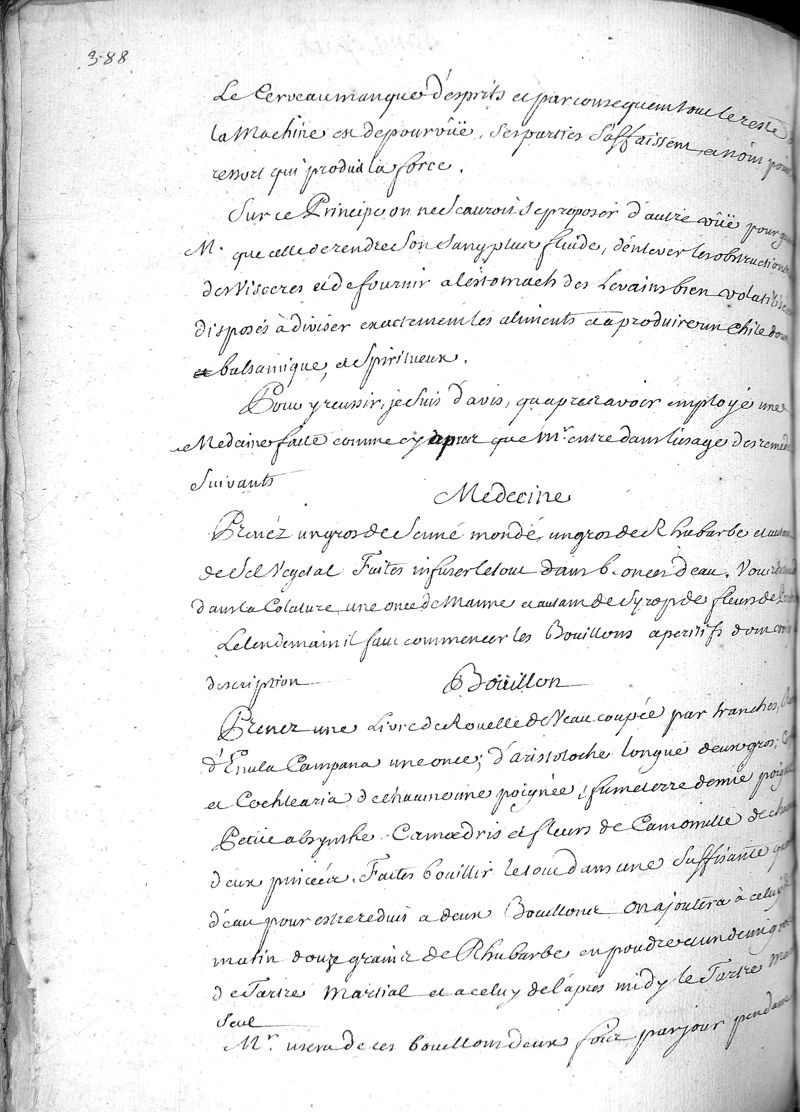 388
Le Cerveau manque d'esprits et par consequent tout le reste
la Machine est depourvûë, ses parties s'affaissent et n'ont point
ressort qui produit la force.
Sur ce Principe on ne scauroit se proposer d'autre vûë pour
M.r que celle de rendre son sang plus fluide, d'enlever les obstructions
des Visceres et de fournir a l'estomach des Levains bien volatilisés
disposés à diviser exactement les aliments et a produire un Chile doux
et balsamique, et Spiritueux.
Pour y reussir, je suis d'avis, qu'apres avoir employé une
Medecine faite comme cy apres que M.r entre dans l'usage des remedes
suivants
Medecine
Prenéz un gros de senné mondé, un gros de Rhubarbe et autant
de Sel Vegetal Faites infuser le tout dans 6. onces d'eau.
dans la Colature une once de Manne et autant de Syrop de fleurs de
Le lendemain il faut commencer les Bouillons aperitifs dont
description
Boüillon
Prenez une Livre de Rouelle de Veau coupée par tranches,
d'Enula Campana une once; d'aristoloche longue deux gros;
et Cochlearia de chaume une poignée, fumeterre demie
Petite absynthe Camœdris et fleurs de Camomille de
deux pincéez. Faites bouillir le tout dans une suffisante
d'eau pour estre reduit a deux Bouillons on ajoutera à celuy
matin douze grains de Rhubarbe en poudre et un demi gros
de Tartre Martial et a celuy de l'apres midy le Tartre
seul
M.r usera de ces bouillons deux fois par jour pendant